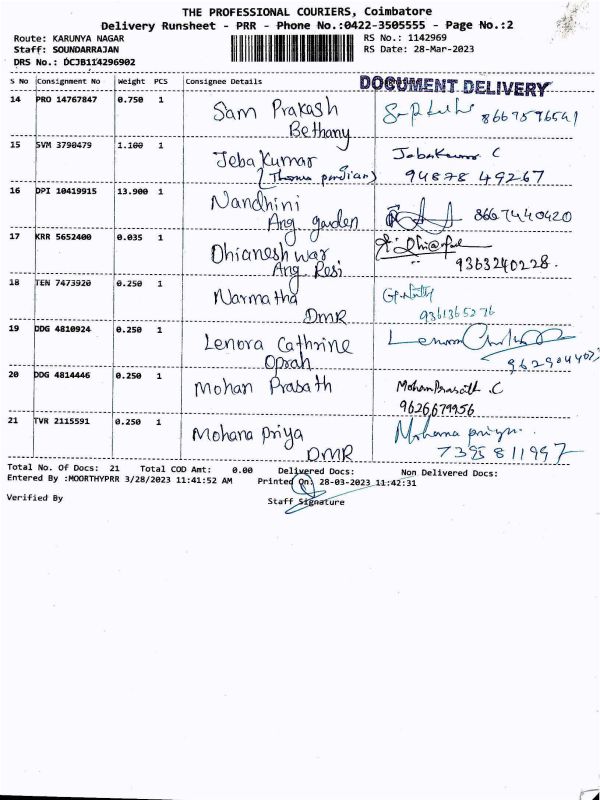 THE PROFESSIONAL COURIERS, Coimbatore
Delivery Runsheet - PRR - Phone No.:0422-3505555 - Page No.:2
Route: KARUNYA NAGAR RS No.: 1142969
Staff: SOUNDARRAJAN RS Date: 28-Mar-2023
DRS No.: DCJB114296902
S No Consignment No Weight PCS Consignee Details DOCUMENT DELIVERY
14 PRO 14767847 0.750 1 Sam Prakash
Bethany
15 SVM 3790479 1.100 1 Jeba Kumar JebaKumar C
(Thomas pandian) 94878 49267
16 DPI 10419915 13.900 1 Nandhini 8667440420
Ang garden
17 KRR 5652400 0.035 1 Dhianeshwar
Ang Resi 9363240228.
18 TEN 7473920 0.250 1 Narmatha
DMR 9361365276
19 DDG 4810924 0.250 1 Lenora Cathrine Lenora
Oprah
20 DDG 4814446 0.250 1 Mohan Prasath MohanPrasath .C
9626679956
21 TVR 2115591 0.250 1 Mohana Priya Mohana priya.
DMR 7395811997
Total No. Of Docs: 21 Total COD Amt: 0.00 Delivered Docs: Non Delivered Docs:
Entered By :MOORTHYPRR 3/28/2023 11:41:52 AM Printed On: 28-03-2023 11:42:31
Verified By Staff Signature